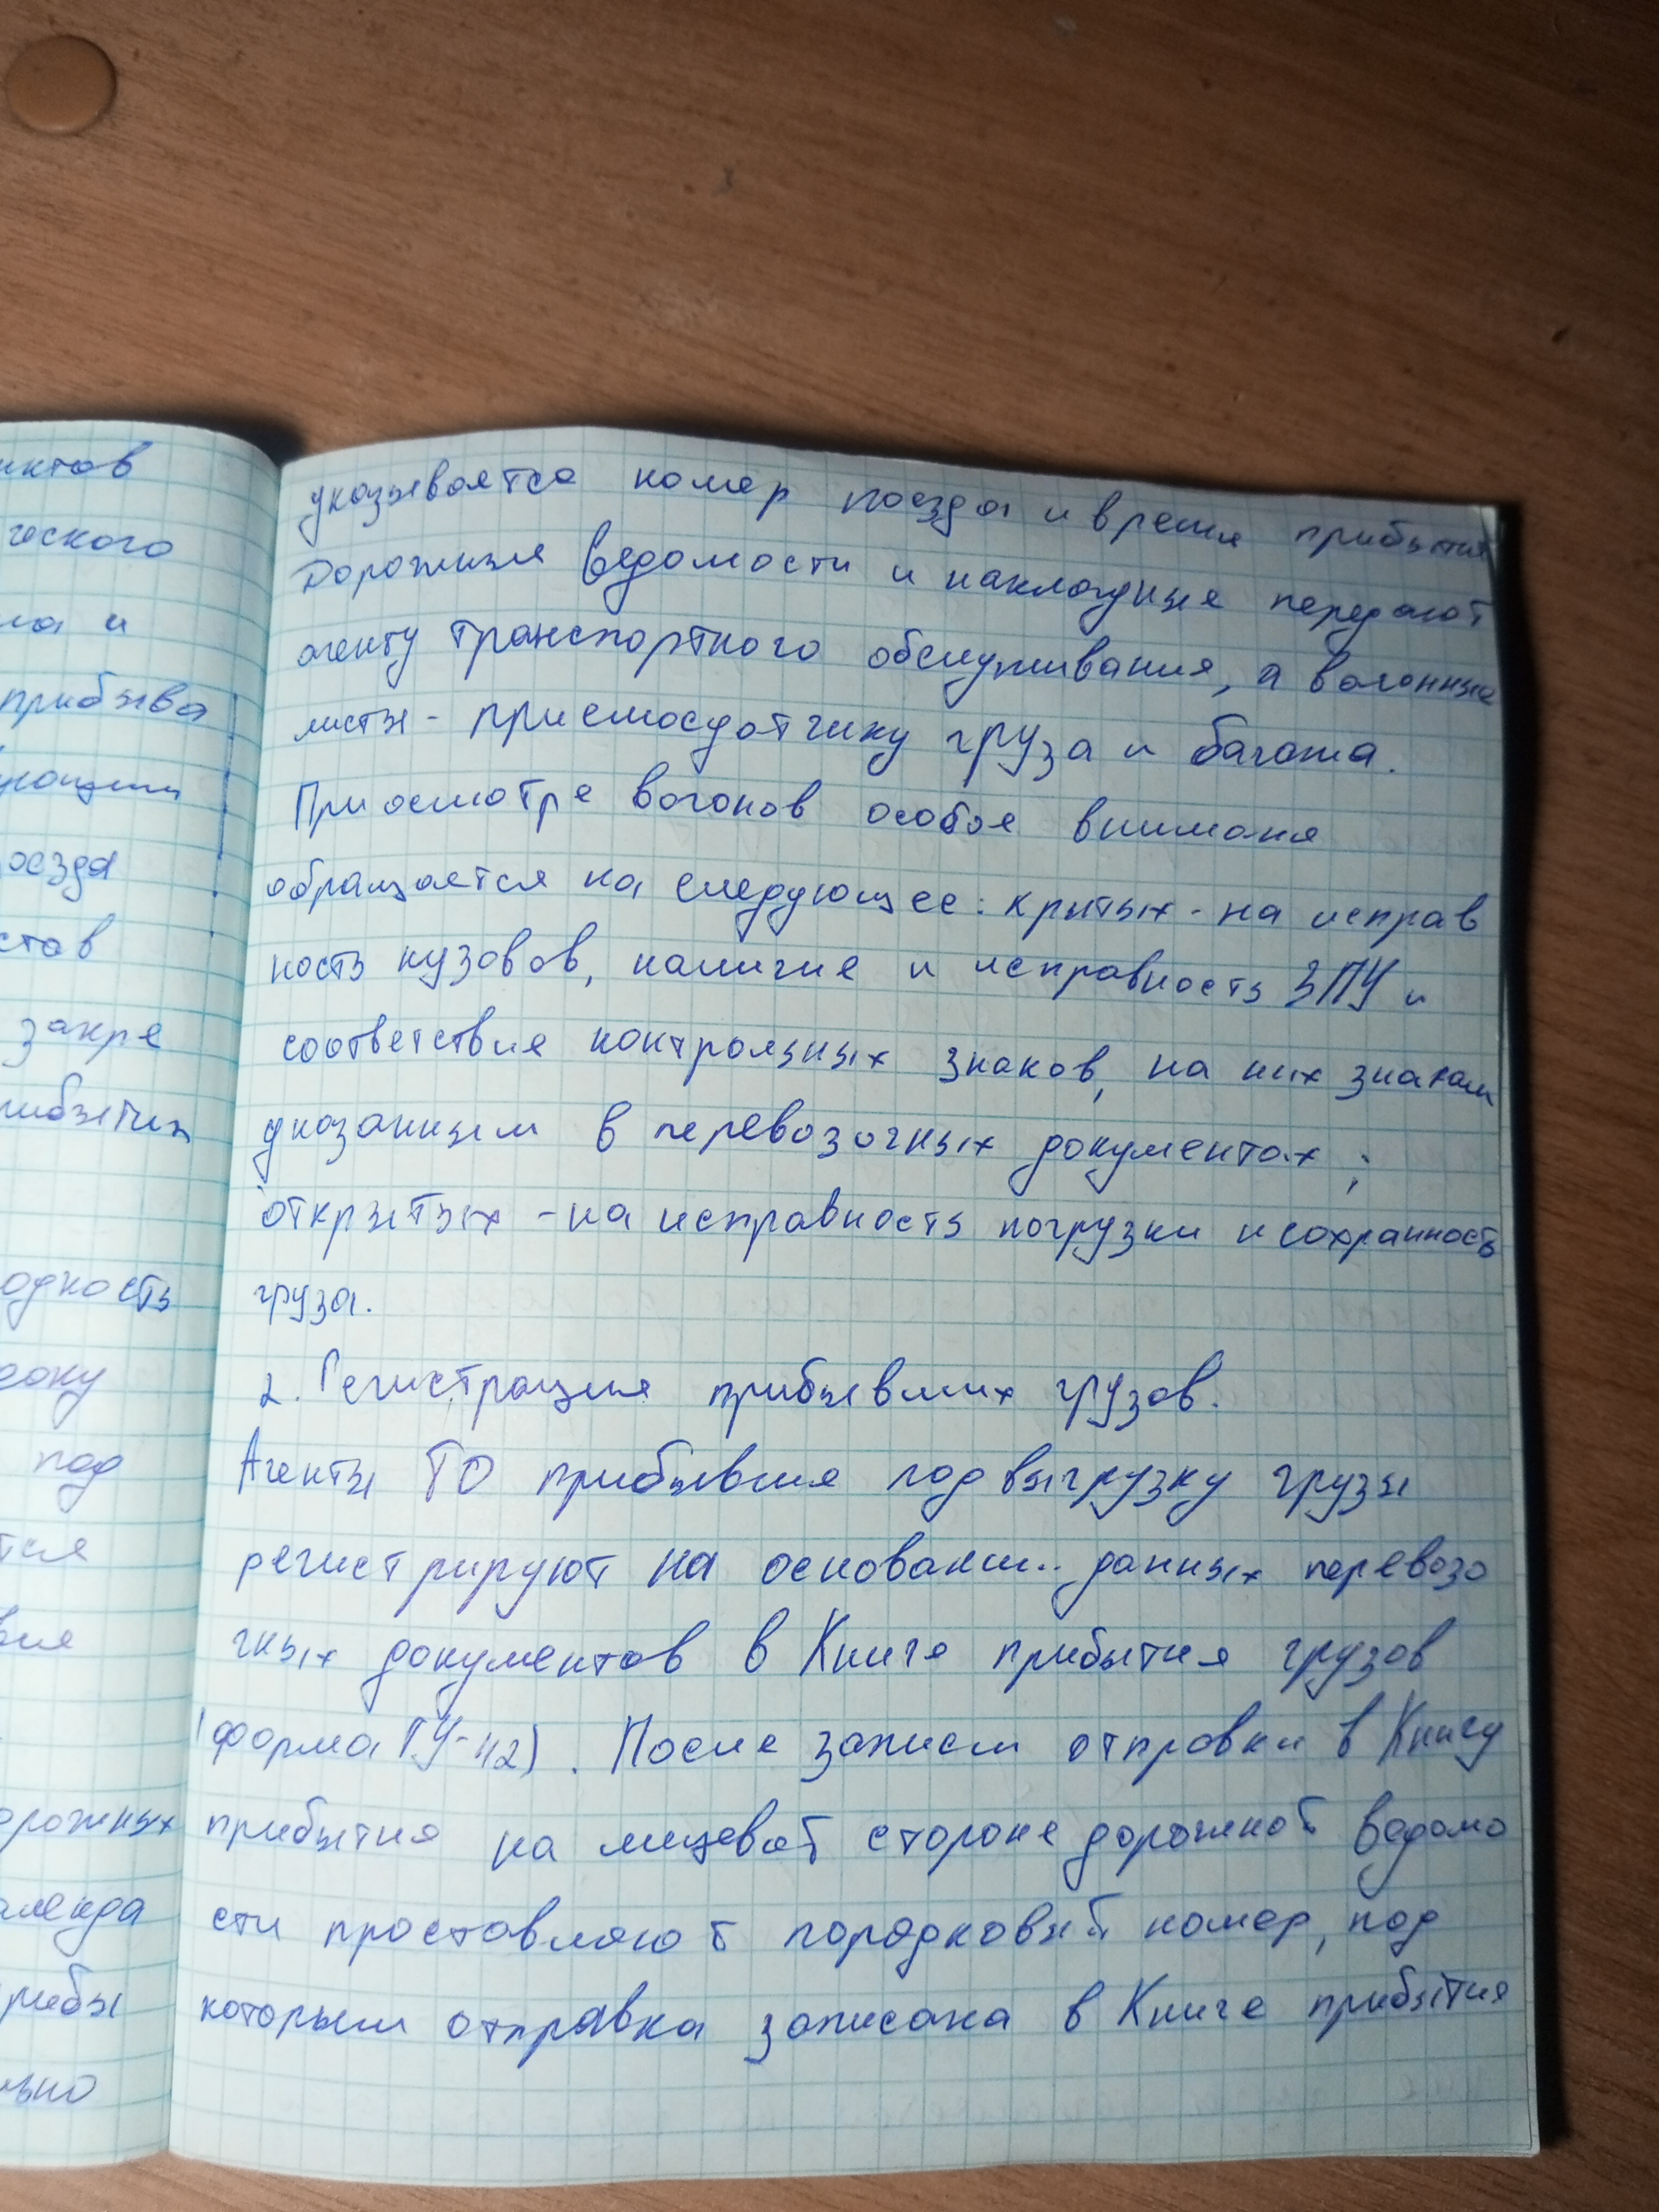 иктов
ческого
ла и
прибыва
оезда
став
закре
рибытия
одность
под
тся
орожных
аленда
рибы
указывается номер поезда и время прибытия
Дорожные ведомости и накладные передают
агенту транспортного обслуживания, а вагонные
листы - приемосдатчику груза и багажа.
При осмотре вагонов особое внимания
обращается на следующее: крытых - на исправ
ность кузовов, наличие и исправность ЗПУ и
соответствие контрольных знаков, на них знакам
указанным в перевозочных документах ;
открытых - на исправность погрузки и сохранность
груза.
2. Регистрация прибывших грузов.
Агенты ТО прибывшие под выгрузку грузы
регистрируют на основании данных перевозо
чных документов в Книге прибытия грузов
(форма ГУ-42). После записи отправки в Книгу
прибытия на лицевой стороне дорожной ведомо
сти проставляют порядковый номер, под
которым отправка записана в Книге прибытия